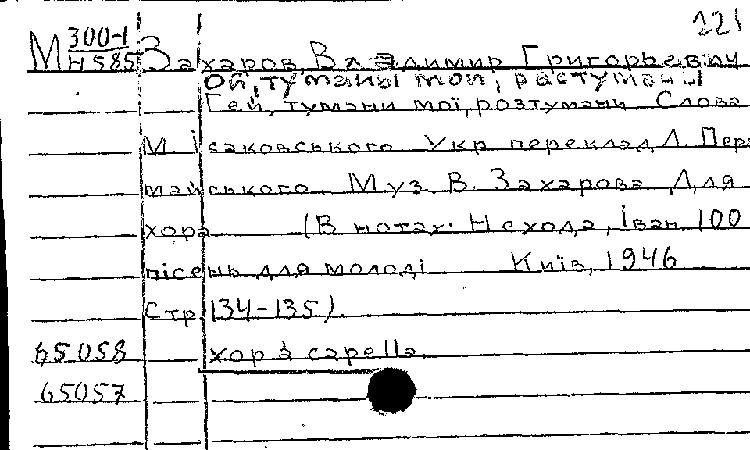 221
М 300-1 Захаров, Владимир Григорьевич
Н 585
Ой, туманы мои, растуманы
Гей, тумани мої, розтумани Слова
М. Ісаковського Укр переклад Л. Пер
майського Муз. В. Захарова Для
хора (В нотах: Нехода, Іван 100
пісень для молоді Київ, 1946
Стр 134-135).
65058 хор а capella
65057